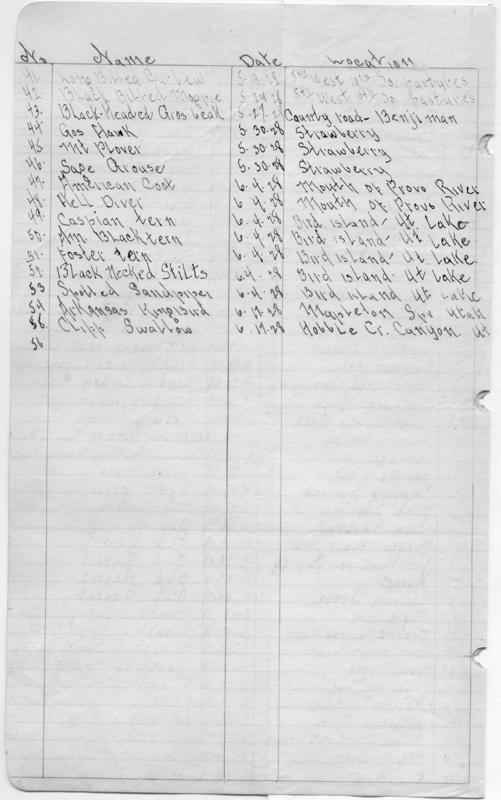 No. Name Date Location
41. Long Billed Curlew 5-19-28 5th West 10th So. pastures
42. Black Billed Magpie 5-24-28 5th West 10th So. pastures
43. Black-Headed Gros beak 5-27-28 County road- Benjiman
44 Gos Hawk 5-30-28 Strawberry
45. Mt Plover 5.30-28 Strawberry
46. Sage Grouse 5.30-28 Strawberry
47. American Coot 6-4-28 Mouth of Provo River
48. Hell Diver 6-4-28 Mouth of Provo River
49. Caspian tern 6-4-28 Bird island- Ut. Lake
50. Am Black tern 6-4-28 Bird island- Ut Lake
51. Foster tern 6-4-28 Bird island- Ut Lake
52. Black Necked Stilts 6-4-28 Bird island- Ut Lake
53 Spotted Sandpiper 6-4-28 Bird island Ut Lake
54 Arkansas King Bird 6-17-28 Mapleton Spv Utah
55. Cliff Swallow 6-17-28 Hobble Cr. Canyon Ut
56